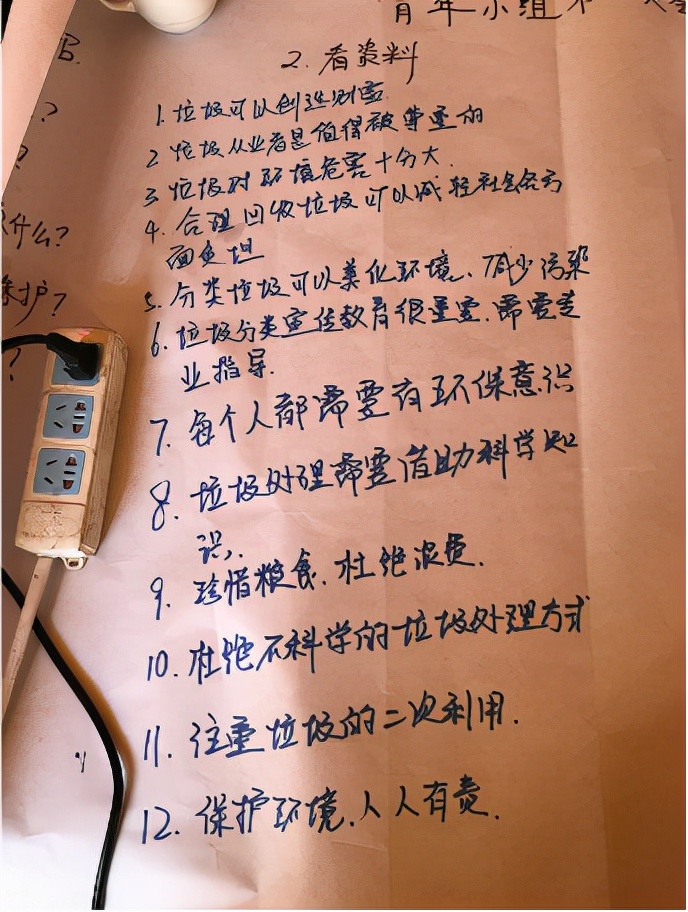 青年小组
2. 看资料
1. 垃圾可以创造财富
2 垃圾从业者是值得被尊重的
3 垃圾对环境危害十分大.
4. 合理回收垃圾可以减轻社会各方
面负担
5. 分类垃圾可以美化环境、减少污染
6. 垃圾分类宣传教育很重要.需要专
业指导.
7. 每个人都需要有环保意识
8. 垃圾处理需要借助科学知
识,
9. 珍惜粮食.杜绝浪费.
10. 杜绝不科学的垃圾处理方式
11. 注重垃圾的二次利用.
12. 保护环境.人人有责.
什么?
护?
?